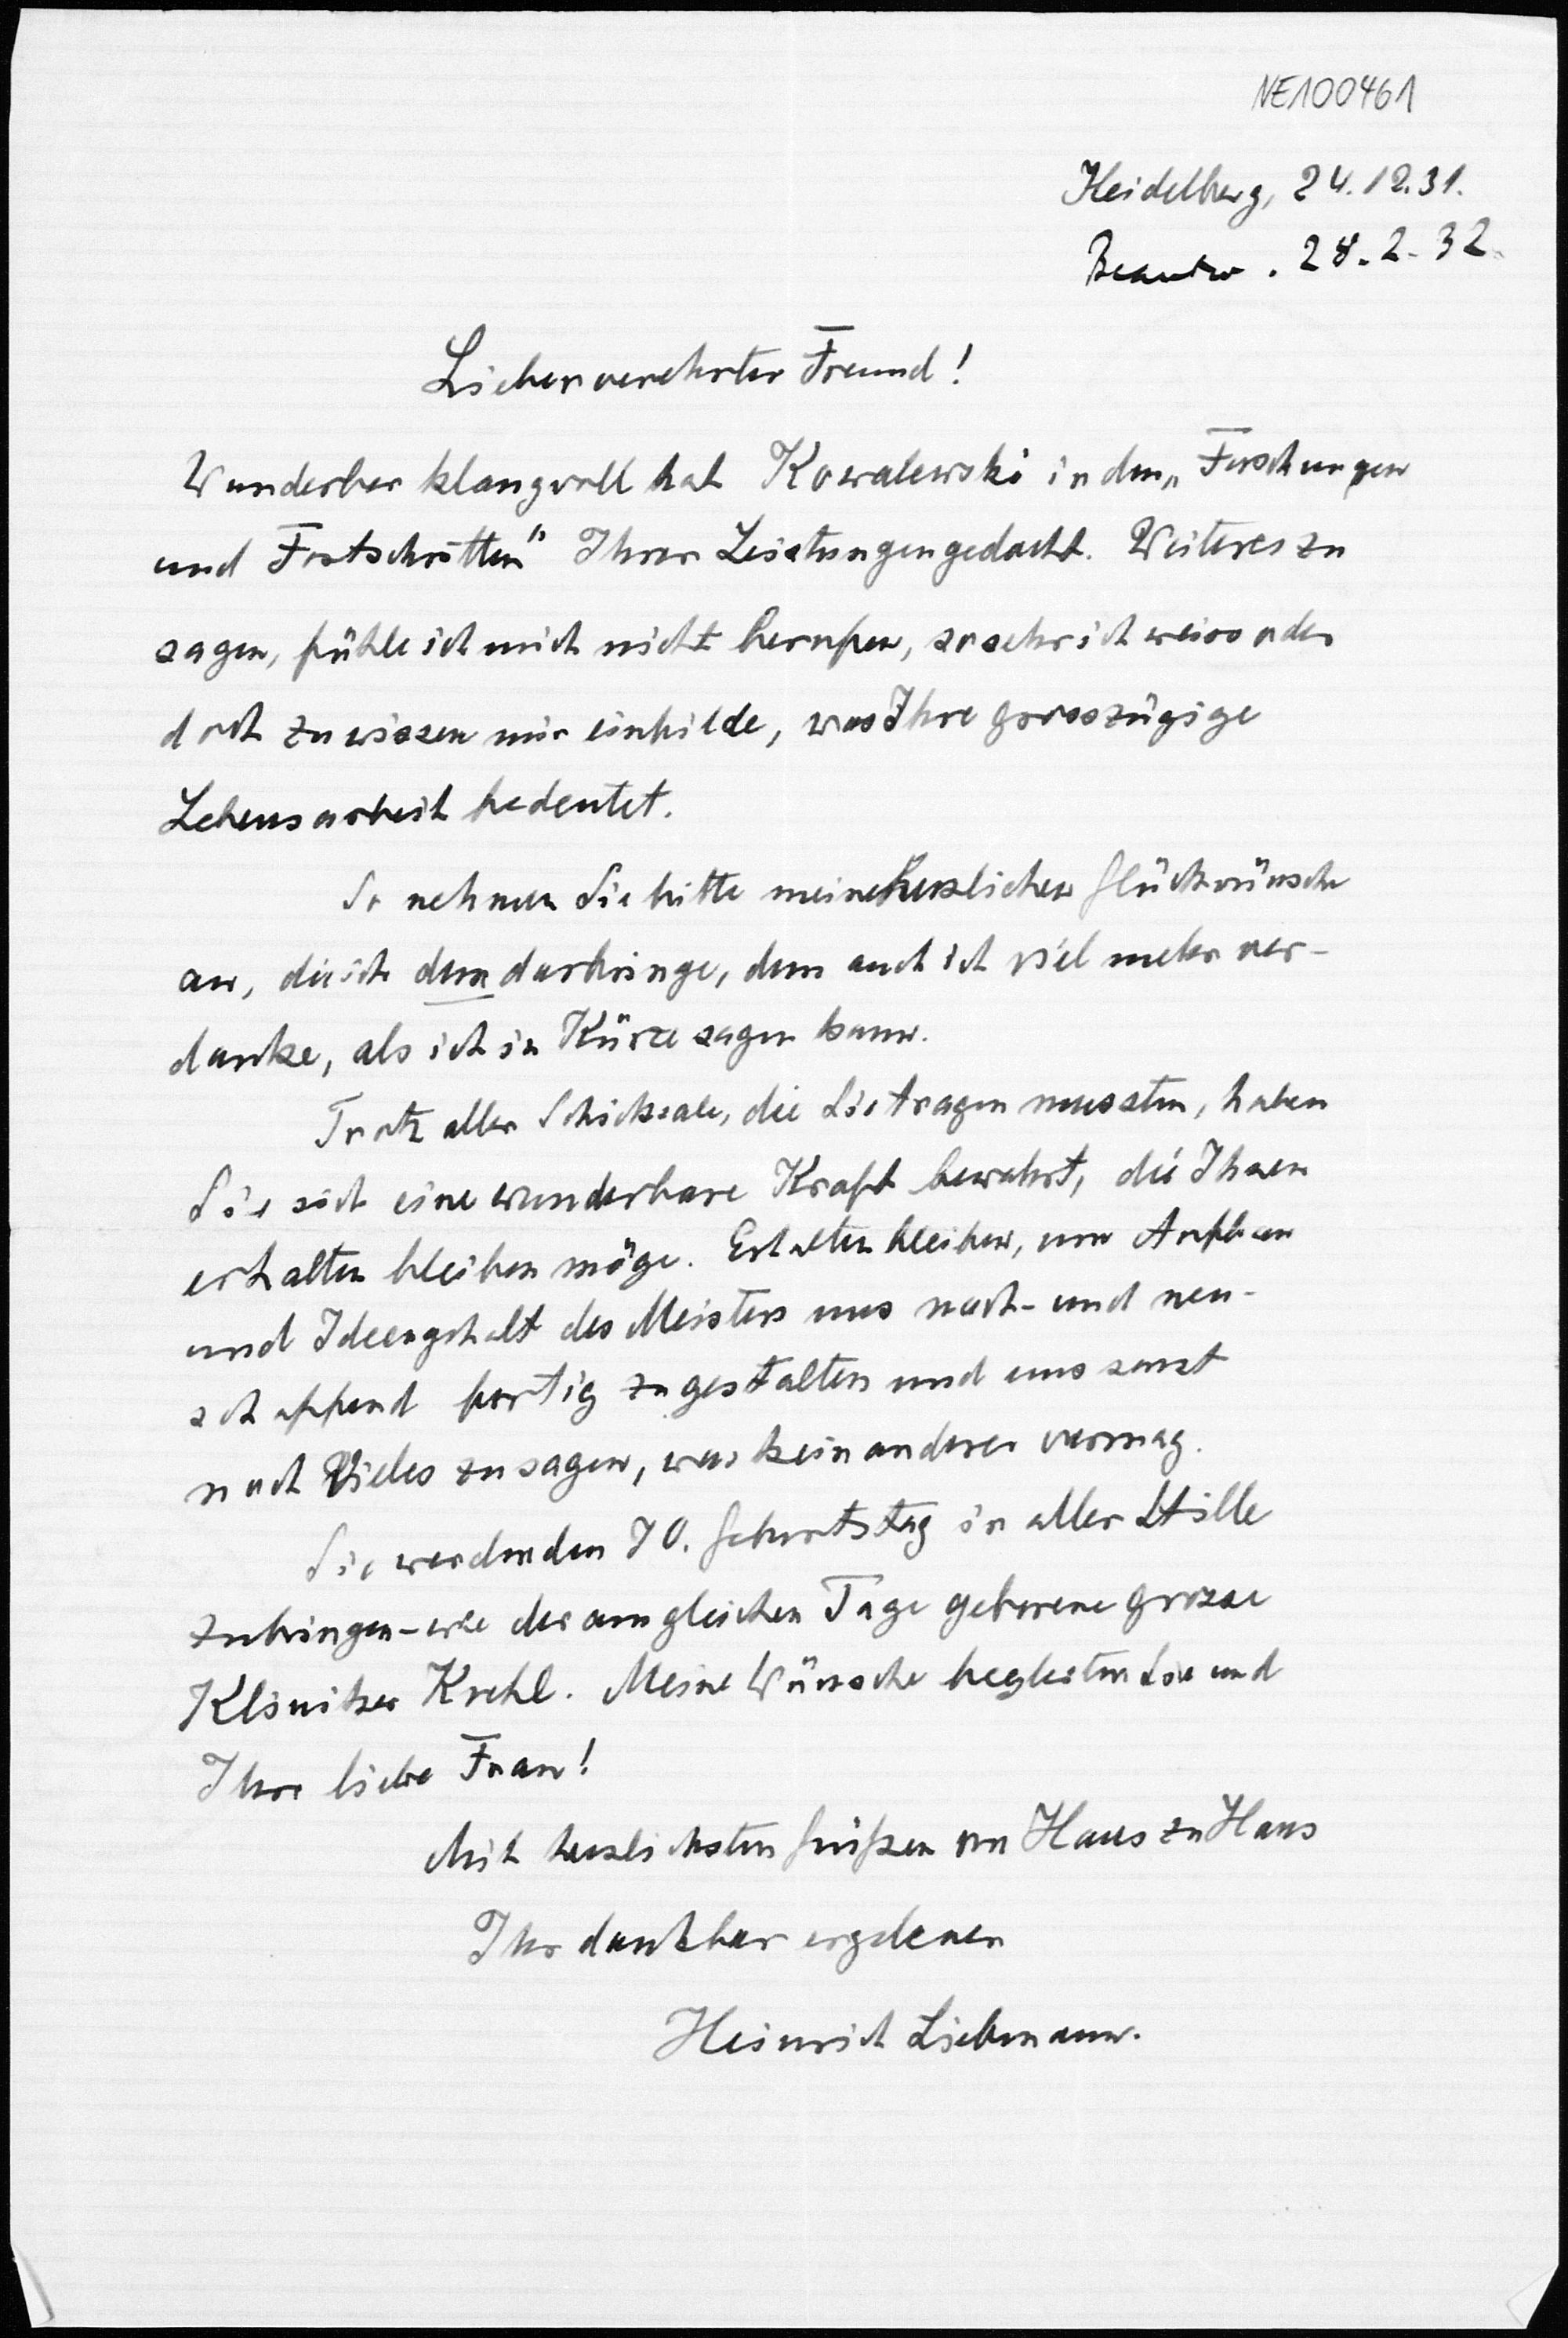 NE100461
Heidelberg, 24.12.31.
Beantw. 28.2.32.
Lieber verehrter Freund!
Wunderbar klangvoll hat Kowalewski in den „Forschungen
und Fortschritten" Ihrer Leistungen gedacht. Weiteres zu
sagen, fühle ich mich nicht berufen, so sehr ich weiss oder
doch zu wissen mir einbilde, was Ihre grosszügige
Lebensarbeit bedeutet.
So nehmen Sie bitte meine herzlichen Glückwünsche
an, die ich dem darbringe, dem auch ich viel mehr ver-
danke, als ich in Kürze sagen kann.
Trotz aller Schicksale, die Sie tragen mussten, haben
Sie sich eine wunderbare Kraft bewahrt, die Ihnen
erhalten bleiben möge. Erhalten bleiben, um Aufbau
und Ideengehalt des Meisters uns nach- und neu-
schaffend fertig zu gestalten und uns sonst
noch Vieles zu sagen, was kein anderer vermag.
Sie werden den 70. Geburtstag in aller Stille
zubringen - wie der am gleichen Tage geborene grosse
Kliniker Krehl. Meine Wünsche begleiten Sie und
Ihre liebe Frau!
Mit herzlichsten Grüßen von Haus zu Haus
Ihr dankbar ergebener
Heinrich Liebmann.